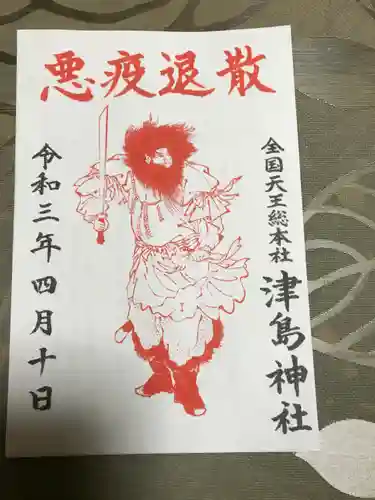 悪疫退散
全国天王総本社
津島神社
令和三年四月十日